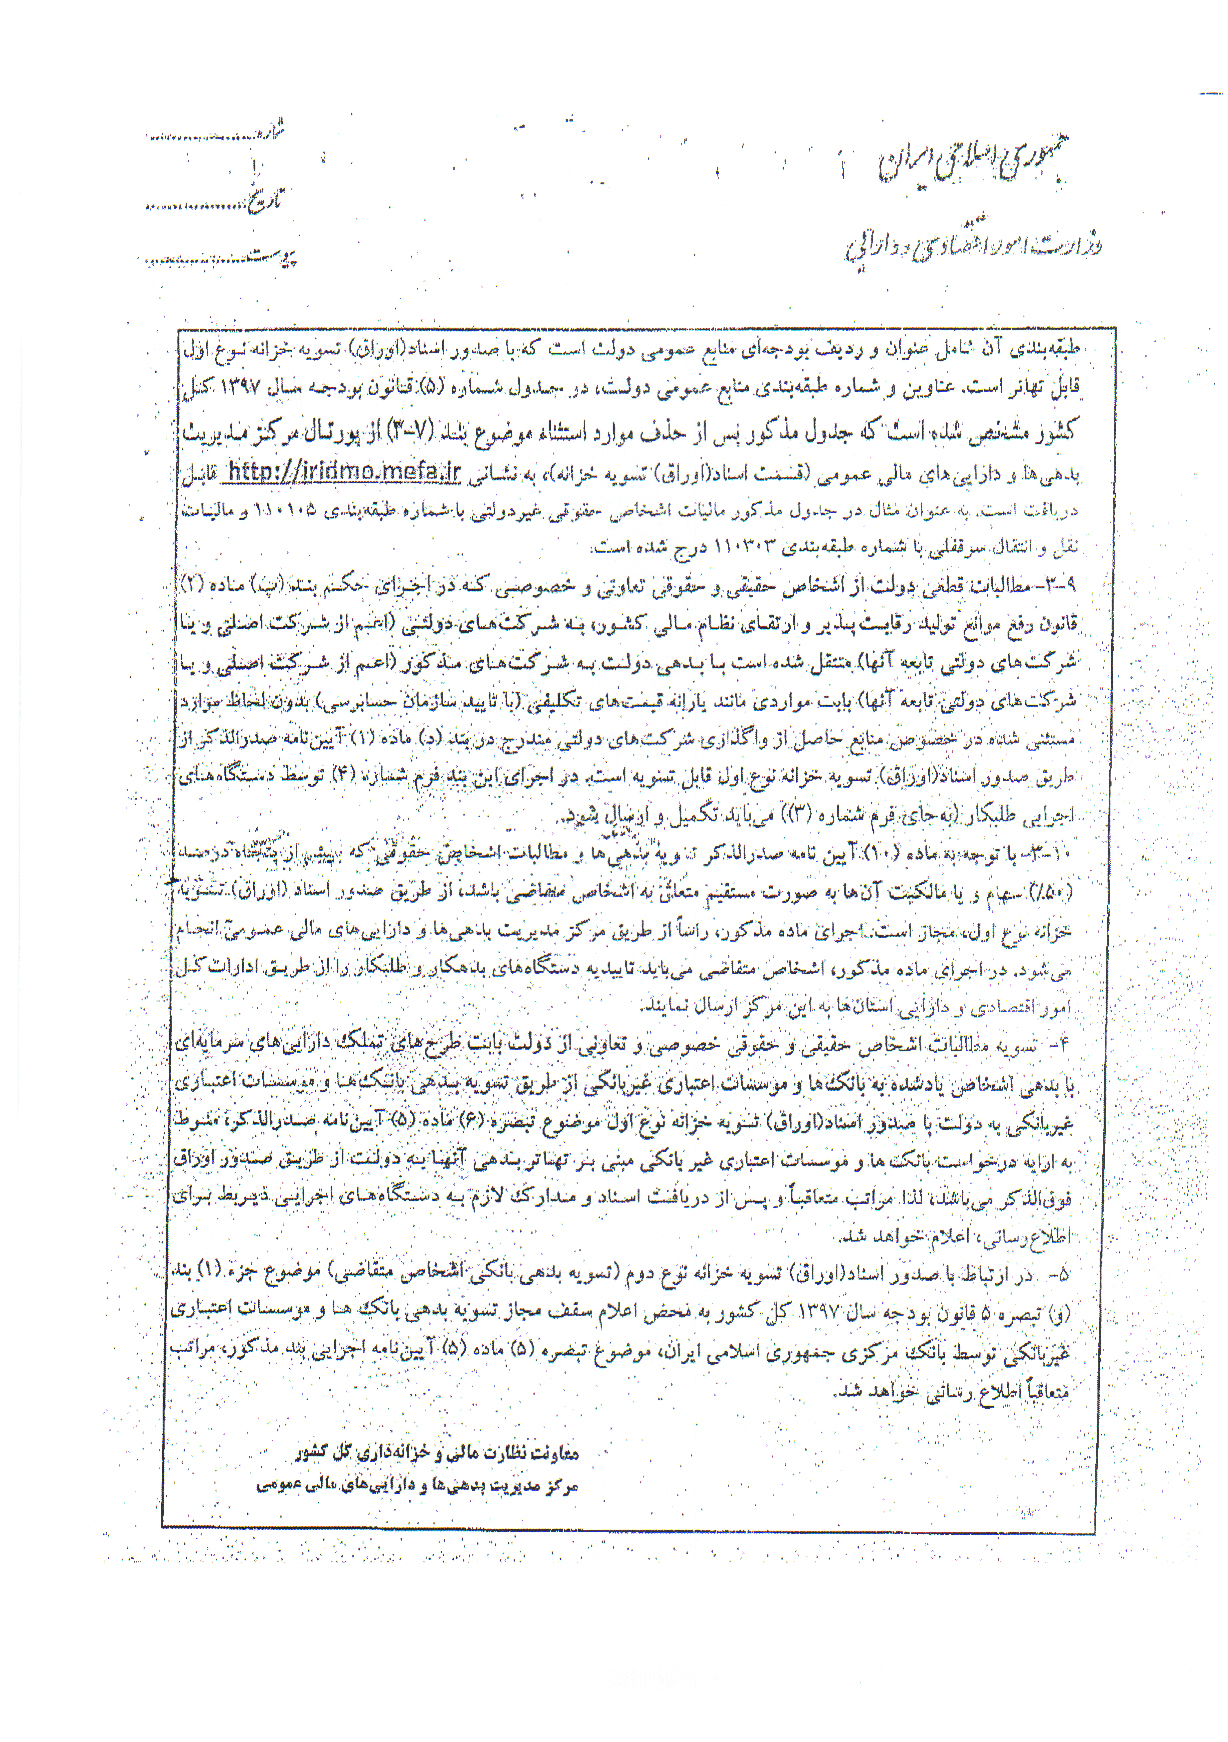 جمهوری اسلامی ایران
وزارت امور اقتصادی و دارائی
شماره
تاریخ
پیوست
طبقه‌بندی آن شامل عنوان و ردیف بودجه‌ای منابع عمومی دولت است که با صدور اسناد(اوراق) تسویه خزانه نوع اول
قابل تهاتر است. عناوین و شماره طبقه‌بندی منابع عمومی دولت، در جدول شماره (۵) قانون بودجه سال ۱۳۹۷ کل
کشور مشخص شده است که جدول مذکور پس از حذف موارد استثناء موضوع بند (۷-۳) از پورتال مرکز مدیریت
بدهی‌ها و دارایی‌های مالی عمومی (قسمت اسناد(اوراق) تسویه خزانه)، به نشانی http://iridmo.mefa.ir قابل
دریافت است. به عنوان مثال در جدول مذکور مالیات اشخاص حقوقی غیردولتی با شماره طبقه‌بندی ۱۱۰۱۰۵ و مالیات
نقل و انتقال سرقفلی با شماره طبقه‌بندی ۱۱۰۳۰۳ درج شده است.
۳-۹- مطالبات قطعی دولت از اشخاص حقیقی و حقوقی تعاونی و خصوصی که در اجرای حکم بند (پ) ماده (۲)
قانون رفع موانع تولید رقابت پذیر و ارتقای نظام مالی کشور، به شرکت‌های دولتی (اعم از شرکت اصلی و یا
شرکت‌های دولتی تابعه آنها) منتقل شده است با بدهی دولت به شرکت‌های مذکور (اعم از شرکت اصلی و یا
شرکت‌های دولتی تابعه آنها) بابت مواردی مانند یارانه قیمت‌های تکلیفی (با تایید سازمان حسابرسی) بدون لحاظ موارد
مستثنی شده در خصوص منابع حاصل از واگذاری شرکت‌های دولتی مندرج در بند (د) ماده (۱) آیین‌نامه صدرالذکر از
طریق صدور اسناد(اوراق) تسویه خزانه نوع اول قابل تسویه است. در اجرای این بند فرم شماره (۴) توسط دستگاه‌های
اجرایی طلبکار (به جای فرم شماره (۳)) می‌باید تکمیل و ارسال شود.
۳-۱۰- با توجه به ماده (۱۰) آیین نامه صدرالذکر تسویه بدهی‌ها و مطالبات اشخاص حقوقی که بیش از پنجاه درصد
(۵۰٪) سهام و یا مالکیت آن‌ها به صورت مستقیم متعلق به اشخاص متقاضی باشد، از طریق صدور اسناد (اوراق) تسویه
خزانه نوع اول، مجاز است. اجرای ماده مذکور، راساً از طریق مرکز مدیریت بدهی‌ها و دارایی‌های مالی عمومی انجام
می‌شود. در اجرای ماده مذکور، اشخاص متقاضی می‌باید تاییدیه دستگاه‌های بدهکار و طلبکار را از طریق ادارات کل
امور اقتصادی و دارایی استان‌ها به این مرکز ارسال نمایند.
۴- تسویه مطالبات اشخاص حقیقی و حقوقی خصوصی و تعاونی از دولت بابت طرح‌های تملک دارایی‌های سرمایه‌ای
با بدهی اشخاص یادشده به بانک‌ها و موسسات اعتباری غیربانکی از طریق تسویه بدهی بانک‌ها و موسسات اعتباری
غیربانکی به دولت با صدور اسناد(اوراق) تسویه خزانه نوع اول موضوع تبصره (۶) ماده (۵) آیین‌نامه صدرالذکر، منوط
به ارایه درخواست بانک ها و موسسات اعتباری غیر بانکی مبنی بر تهاتر بدهی آنها به دولت از طریق صدور اوراق
فوق‌الذکر می‌باشد، لذا مراتب متعاقباً و پس از دریافت اسناد و مدارک لازم به دستگاه‌های اجرایی ذیربط برای
اطلاع‌رسانی، اعلام خواهد شد.
۵- در ارتباط با صدور اسناد(اوراق) تسویه خزانه نوع دوم (تسویه بدهی بانکی اشخاص متقاضی) موضوع جزء (۱) بند
(و) تبصره ۵ قانون بودجه سال ۱۳۹۷ کل کشور به محض اعلام سقف مجاز تسویه بدهی بانک ها و موسسات اعتباری
غیربانکی توسط بانک مرکزی جمهوری اسلامی ایران، موضوع تبصره (۵) ماده (۵) آیین‌نامه اجرایی بند مذکور، مراتب
متعاقباً اطلاع رسانی خواهد شد.
معاونت نظارت مالی و خزانه‌داری کل کشور
مرکز مدیریت بدهی‌ها و دارایی‌های مالی عمومی